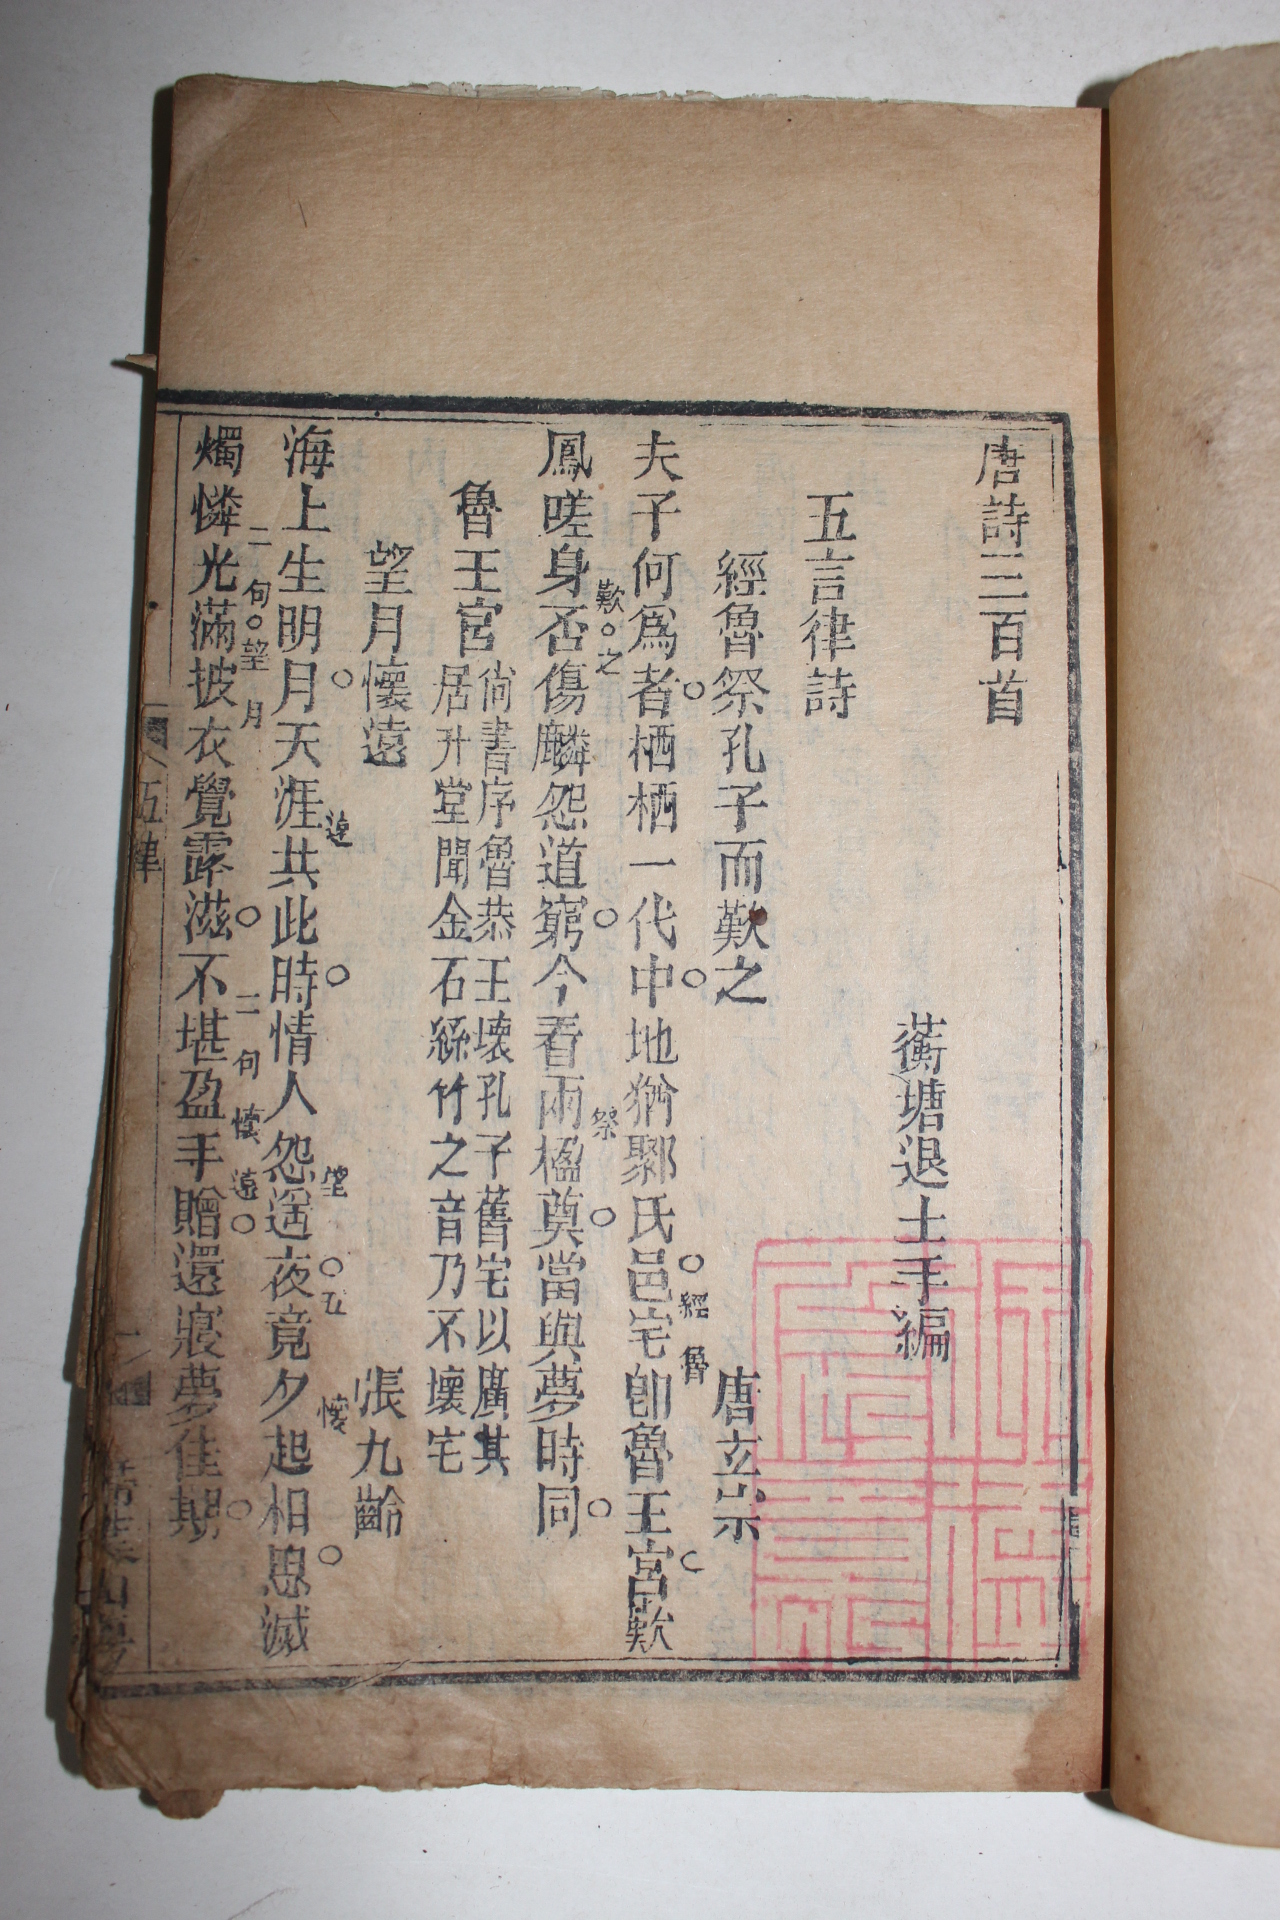 唐詩三百首
蘅塘退士手編
五言律詩
經魯祭孔子而歎之 唐玄宗
夫子何爲者栖栖一代中地猶鄹氏邑宅卽魯王宮歎
經魯
鳳嗟身否傷麟怨道窮今看兩楹奠當與夢時同
歎之 祭
魯王宮尙書序魯恭王壞孔子舊宅以廣其
居升堂聞金石絲竹之音乃不壞宅
望月懷遠 張九齡
海上生明月天涯共此時情人怨遥夜竟夕起相思滅
遠 望 五 懷
燭憐光滿披衣覺露滋不堪盈手贈還寢夢佳期
二句望月 二句懷遠
五律